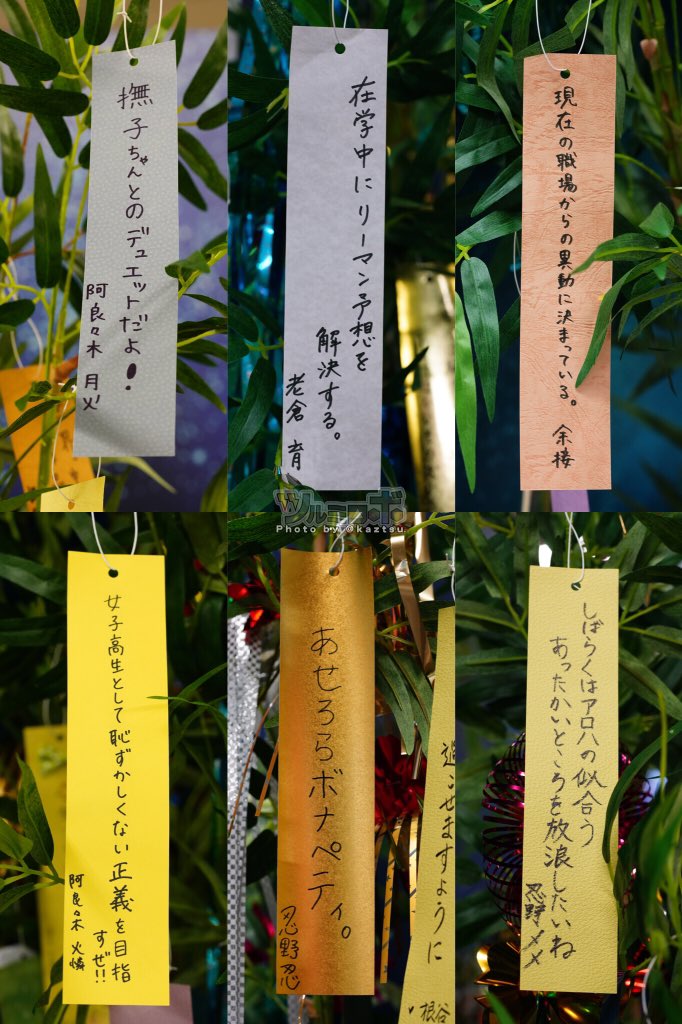 撫子ちゃんとのデュエットだよ!
阿良々木 月火
在学中にリーマン予想を
解決する。
老倉 育
現在の職場からの異動に決まっている。
余接
ツルミーボ
Photo by @kaztsu
女子高生として恥ずかしくない正義を目指
すぜ!!
阿良々木 火憐
あせろらボナペティ。
忍野忍
過ごせますように
根谷
しばらくはアロハの似合う
あったかいところを放浪したいね
忍野メメ